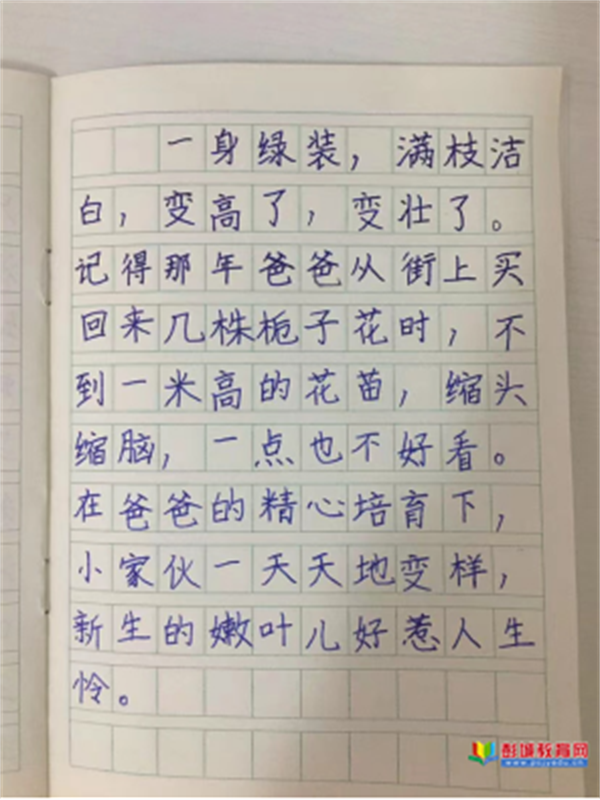 一身绿装，满枝洁
白，变高了，变壮了。
记得那年爸爸从街上买
回来几株栀子花时，不
到一米高的花苗，缩头
缩脑，一点也不好看。
在爸爸的精心培育下，
小家伙一天天地变样，
新生的嫩叶儿好惹人生
怜。
彭城教育网